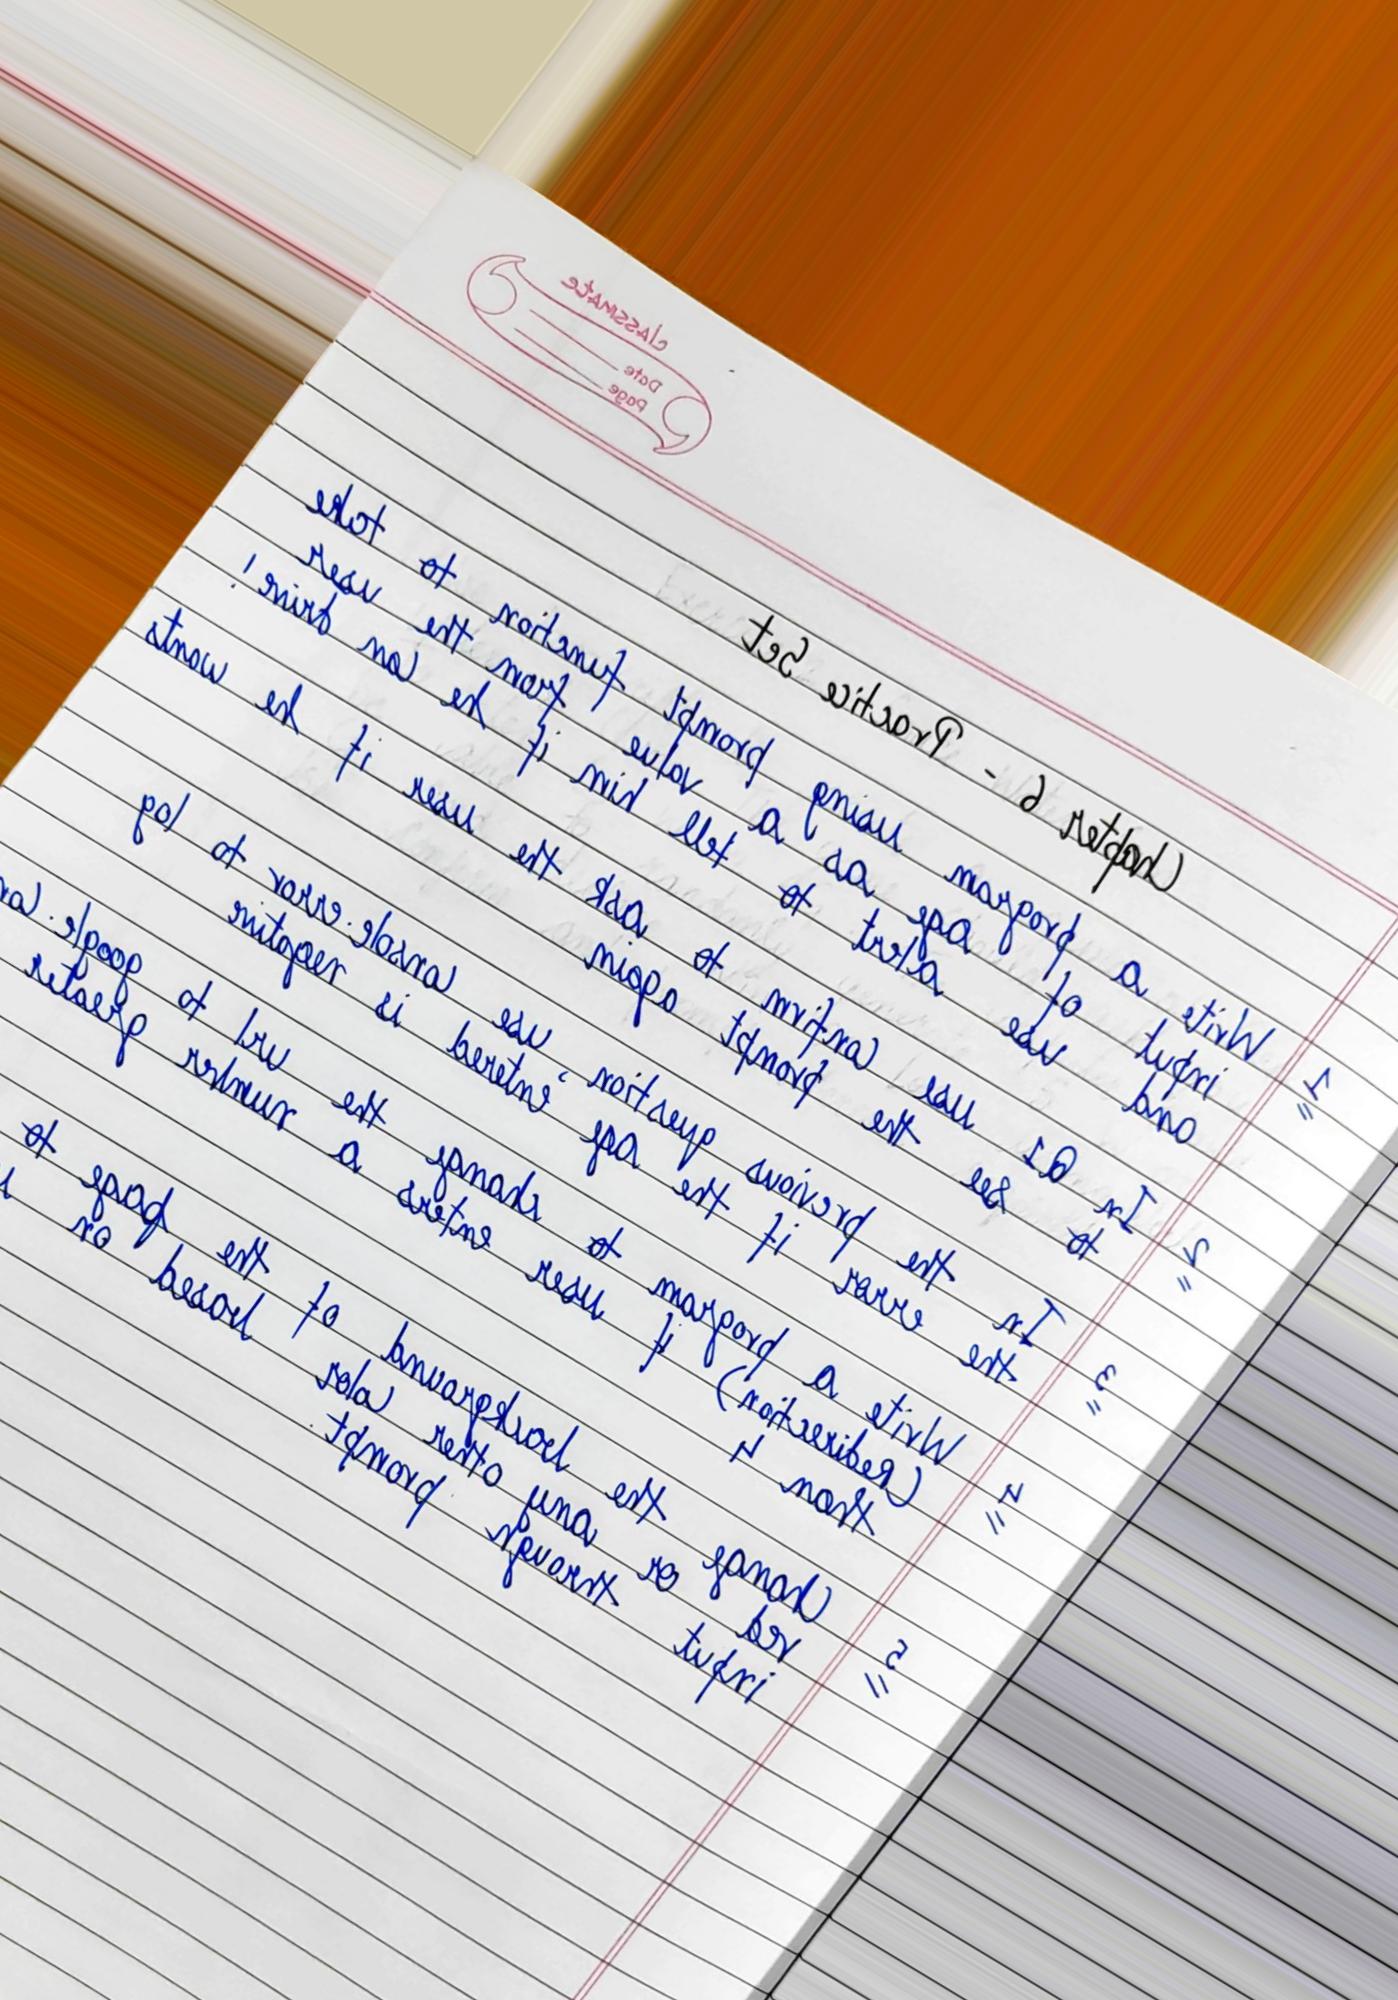 classmate
Date
Page
Chapter 6 - Practice Set
1= Write a program using prompt function to take
input of age as a value from the user
and use alert to tell him if he can drive!
2= In Q1 use confirm to ask the user if he wants
to see the prompt again
3= In the previous question, use console.error to log
the error if the age entered is negative
4= Write a program to change the url to google.com
(Redirection) if user enters a number greater
than 4
5= Change the background of the page to
red or any other color based on
input through prompt.